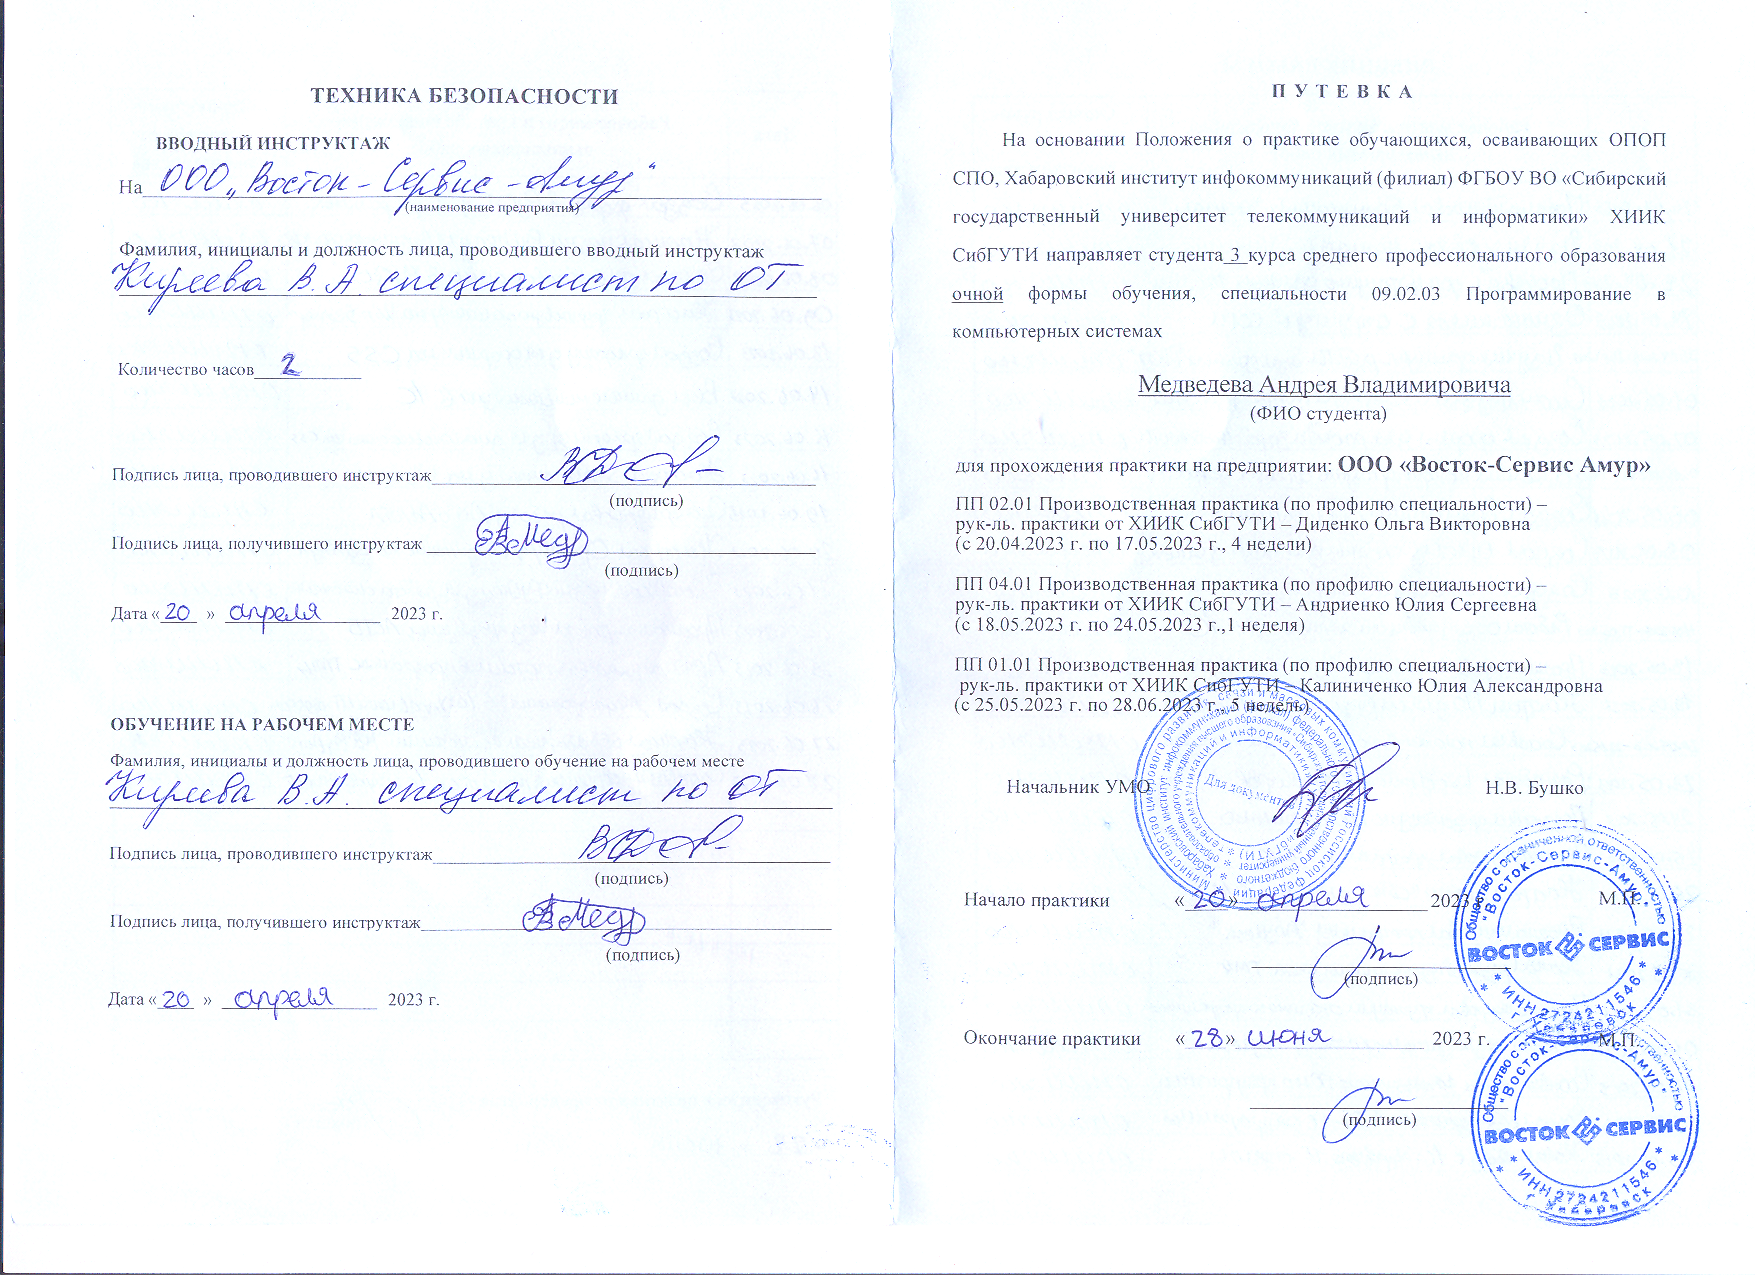 ТЕХНИКА БЕЗОПАСНОСТИ
ВВОДНЫЙ ИНСТРУКТАЖ
На ООО „Восток-Сервис-Амур"
(наименование предприятия)
Фамилия, инициалы и должность лица, проводившего вводный инструктаж
Киреева В.А. специалист по ОТ
Количество часов 2
Подпись лица, проводившего инструктаж
(подпись)
Подпись лица, получившего инструктаж
(подпись)
Дата « 20 » апреля 2023 г.
ОБУЧЕНИЕ НА РАБОЧЕМ МЕСТЕ
Фамилия, инициалы и должность лица, проводившего обучение на рабочем месте
Киреева В.А. специалист по ОТ
Подпись лица, проводившего инструктаж
(подпись)
Подпись лица, получившего инструктаж
(подпись)
Дата « 20 » апреля 2023 г.
П У Т Е В К А
На основании Положения о практике обучающихся, осваивающих ОПОП
СПО, Хабаровский институт инфокоммуникаций (филиал) ФГБОУ ВО «Сибирский
государственный университет телекоммуникаций и информатики» ХИИК
СибГУТИ направляет студента 3 курса среднего профессионального образования
очной формы обучения, специальности 09.02.03 Программирование в
компьютерных системах
Медведева Андрея Владимировича
(ФИО студента)
для прохождения практики на предприятии: ООО «Восток-Сервис Амур»
ПП 02.01 Производственная практика (по профилю специальности) –
рук-ль. практики от ХИИК СибГУТИ – Диденко Ольга Викторовна
(с 20.04.2023 г. по 17.05.2023 г., 4 недели)
ПП 04.01 Производственная практика (по профилю специальности) –
рук-ль. практики от ХИИК СибГУТИ – Андриенко Юлия Сергеевна
(с 18.05.2023 г. по 24.05.2023 г.,1 неделя)
ПП 01.01 Производственная практика (по профилю специальности) –
рук-ль. практики от ХИИК СибГУТИ – Калиниченко Юлия Александровна
(с 25.05.2023 г. по 28.06.2023 г., 5 недель)
Начальник УМО Н.В. Бушко
Для документов
Начало практики « 20 » апреля 2023 г. М.П.
(подпись)
Общество с ограниченной ответственностью
"Восток-Сервис-Амур"
ВОСТОК СЕРВИС
* ИНН 2724211546 *
г. Хабаровск
Окончание практики « 28 » июня 2023 г. М.П.
(подпись)
Общество с ограниченной ответственностью
"Восток-Сервис-Амур"
ВОСТОК СЕРВИС
* ИНН 2724211546 *
г. Хабаровск